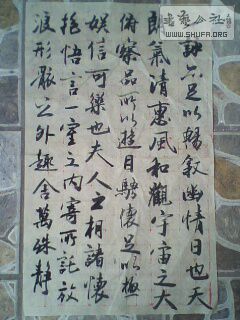 書藝公社
WWW.SHUFA.ORG
詠亦足以暢敘幽情日也天
朗氣清惠風和觀宇宙之大
俯察品所以遊目騁懷足以極
娛信可樂也夫人之相諸懷
抱悟言一室之內寄所託放
浪形骸之外趣舍萬殊靜